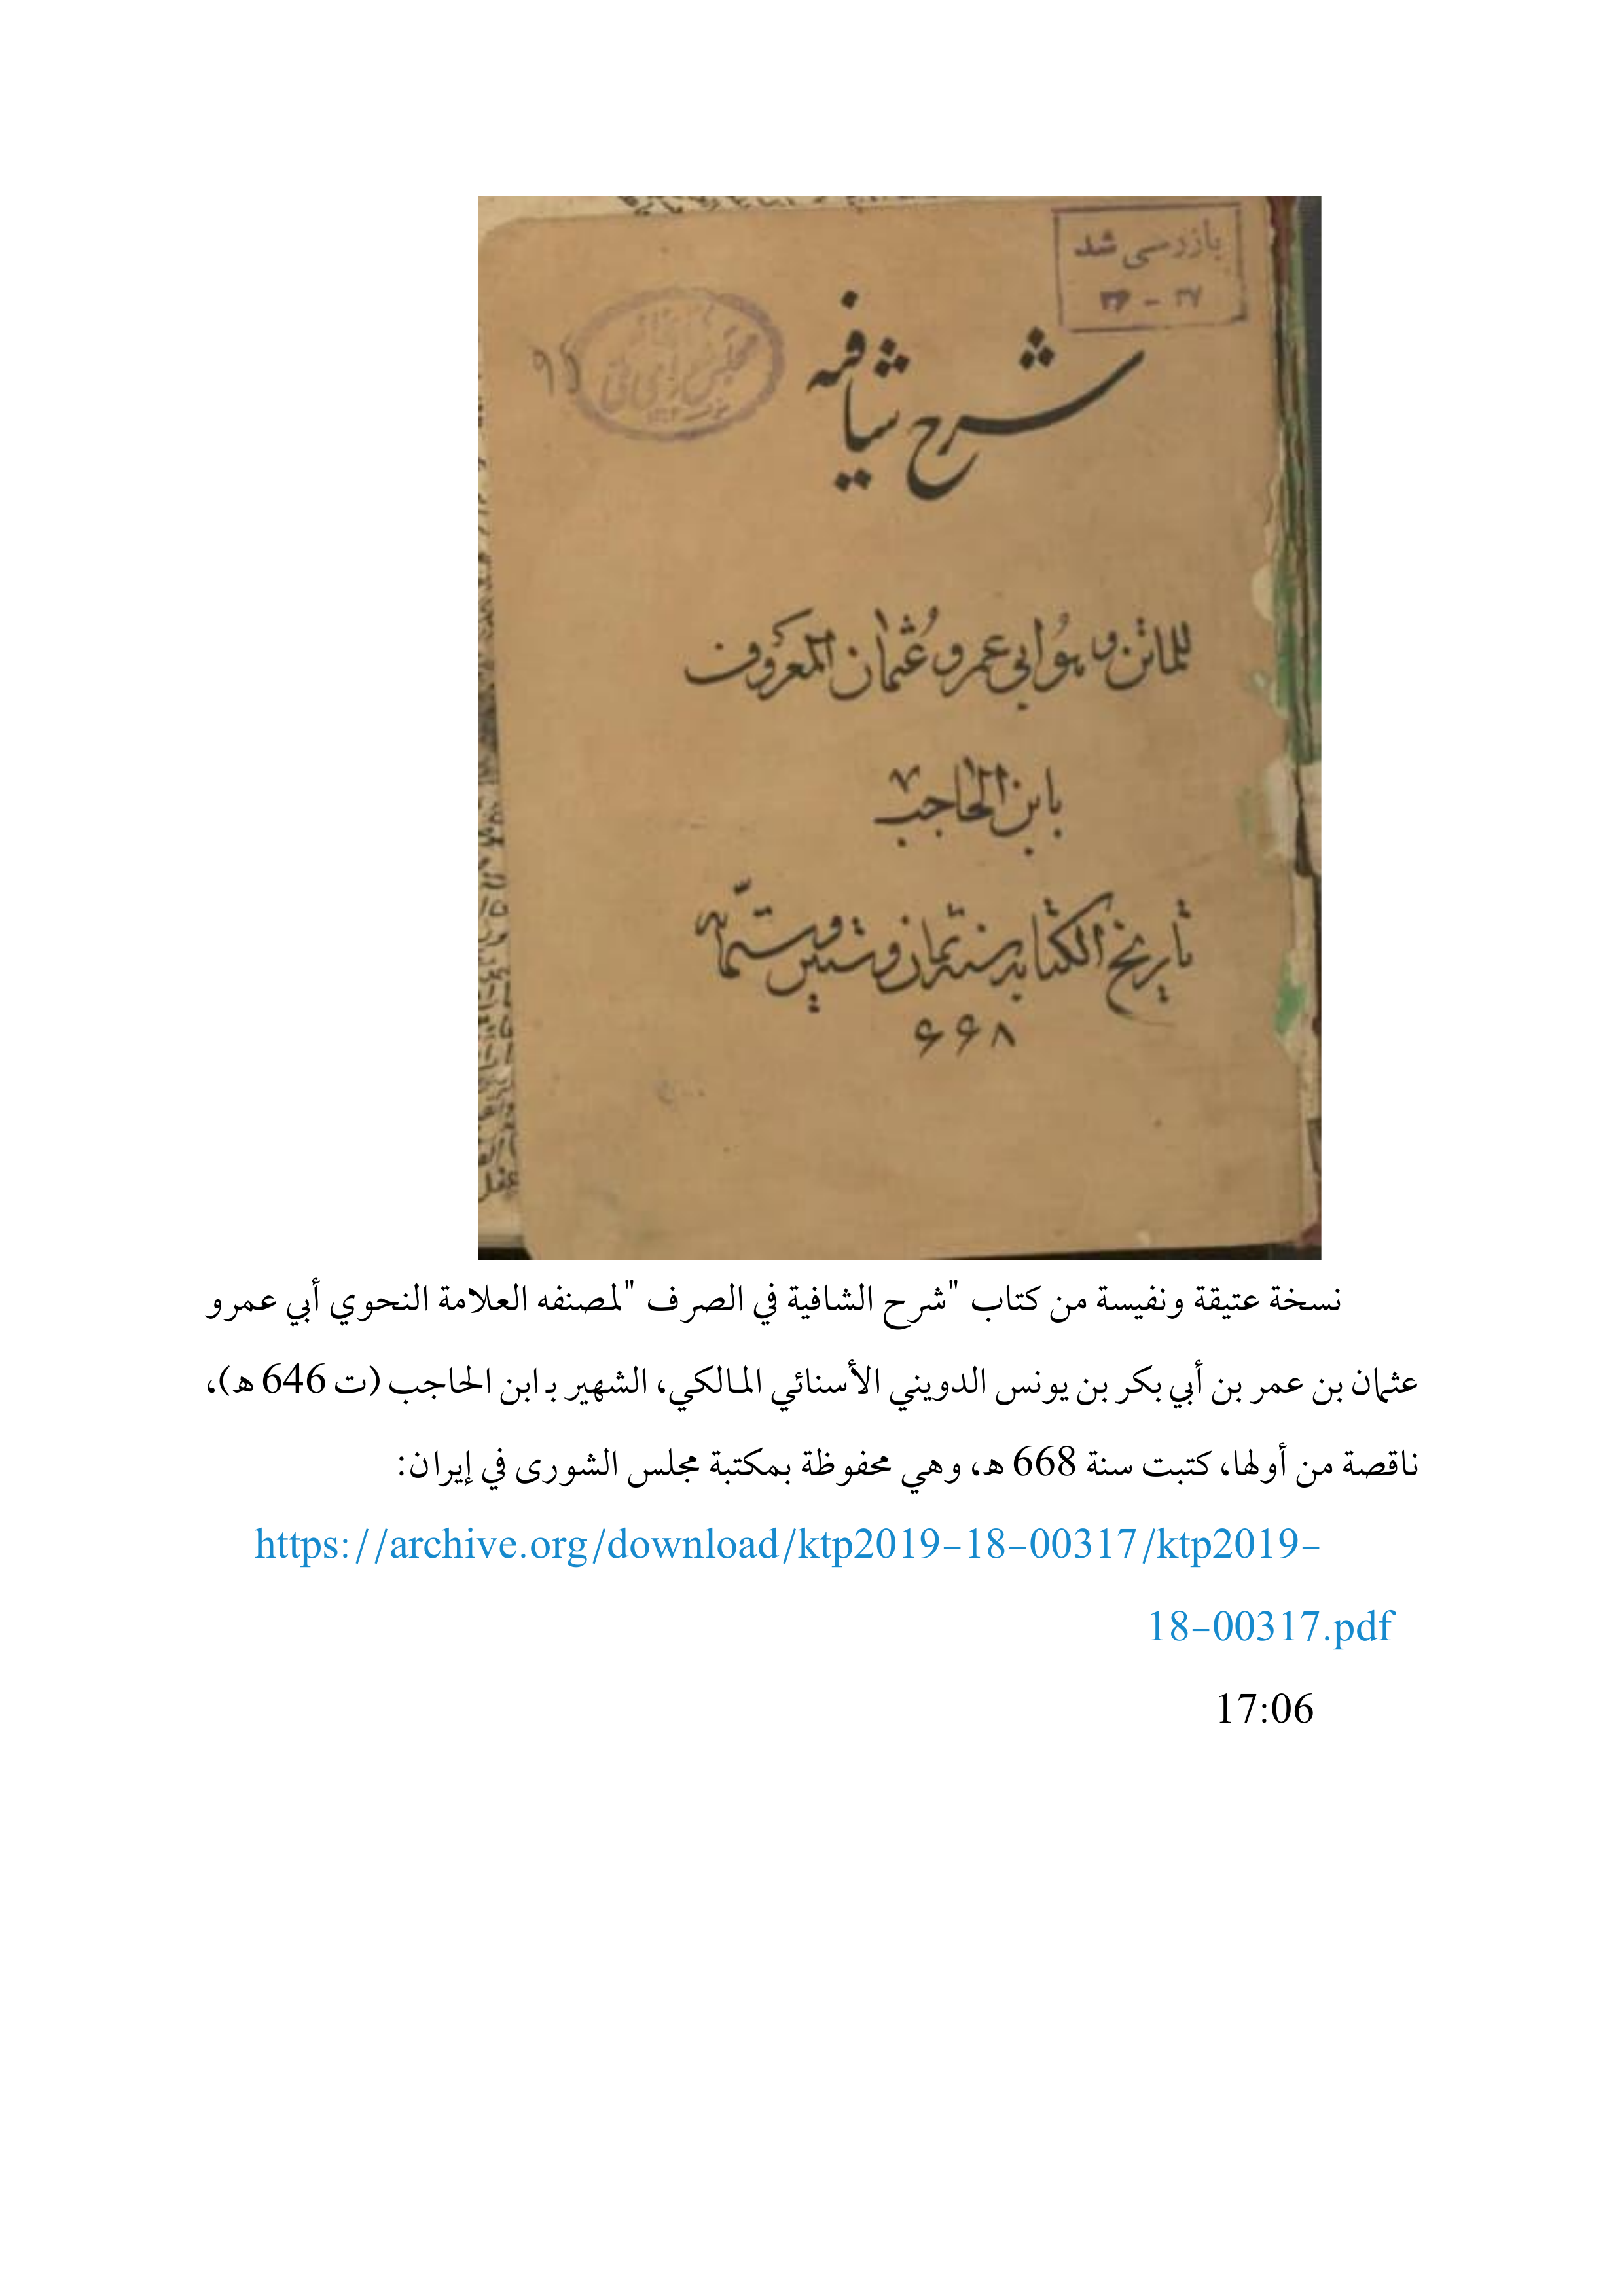 بازرسی شد
۳۶ - ۳۷
شرح شافیه
للماتن و هو ابی عمرو عُثمان المعروف
بابن الحاجب
تاریخ الکتابه سنه ثمان و ستین و ستّمائه
۶۶۸
نسخة عتيقة ونفيسة من كتاب "شرح الشافية في الصرف "لمصنفه العلامة النحوي أبي عمرو
عثمان بن عمر بن أبي بكر بن يونس الدويني الأسنائي المالكي، الشهير بـ ابن الحاجب (ت 646 هـ)،
ناقصة من أولها، كتبت سنة 668 هـ، وهي محفوظة بمكتبة مجلس الشورى في إيران:
https://archive.org/download/ktp2019-18-00317/ktp2019-
18-00317.pdf
17:06